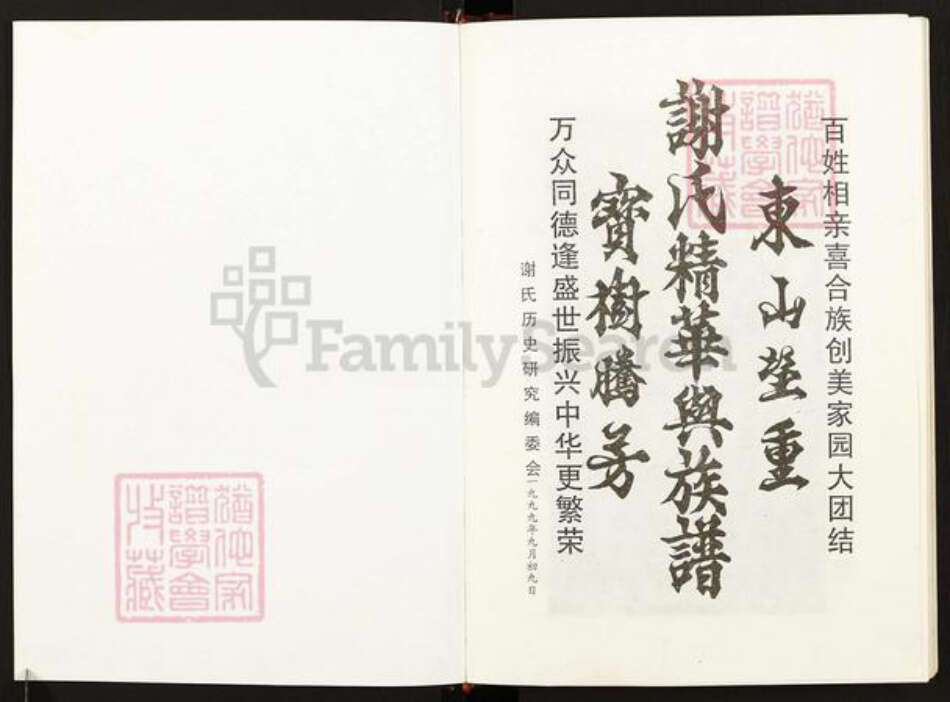 百姓相亲喜合族创美家园大团结
東山望重
謝氏精華與族譜
寶樹騰芳
万众同德逢盛世振兴中华更繁荣
谢氏历史研究编委会一九九九年九月初九日
猶他家譜學會收藏
猶他家譜學會收藏
FamilySearch